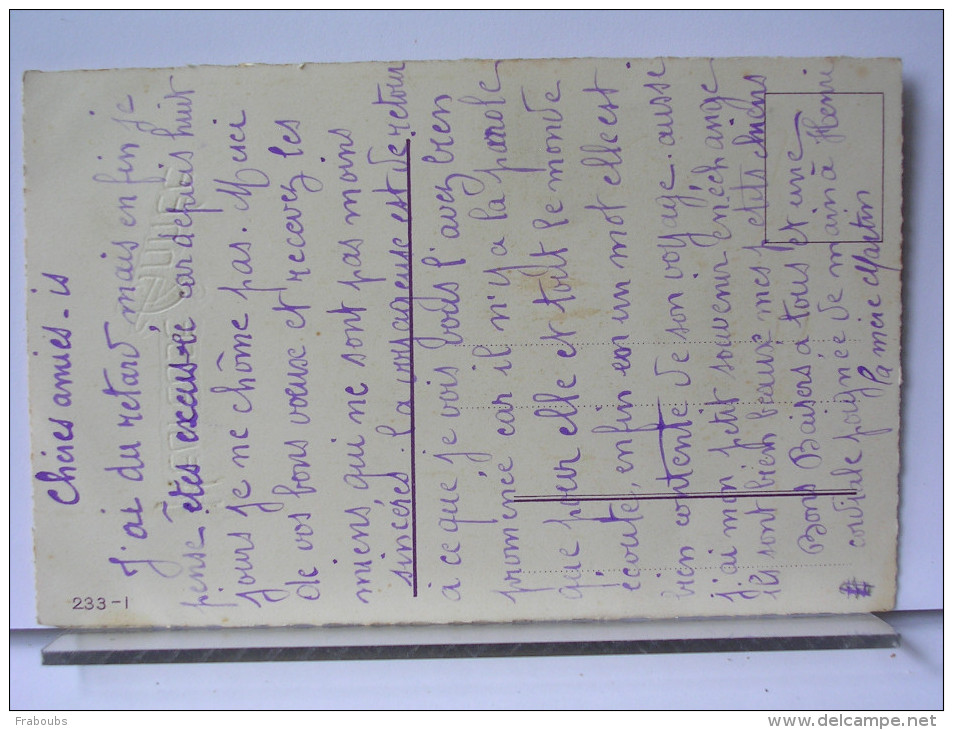 Chères amies - is
J'ai du retard mais en fin je
pense êtes excusée car depuis huit
jours je ne chôme pas. Merci
de vos bons vœux et recevez les
miens qui ne sont pas moins
sincères. La voyageuse est de retour
à ce que je vois vous l'avez bien
promenée car il n'y a la parole
que pour elle et tout le monde
écoute, enfin en un mot elle est
bien contente de son voyage. aussi
j'ai mon petit souvenir en échange
ils sont bien beaux mes petits chiens
Bons Baisers à tous et une
cordiale poignée de main à Henri
la mère Martin
233-1
Fraboubs
www.delcampe.net